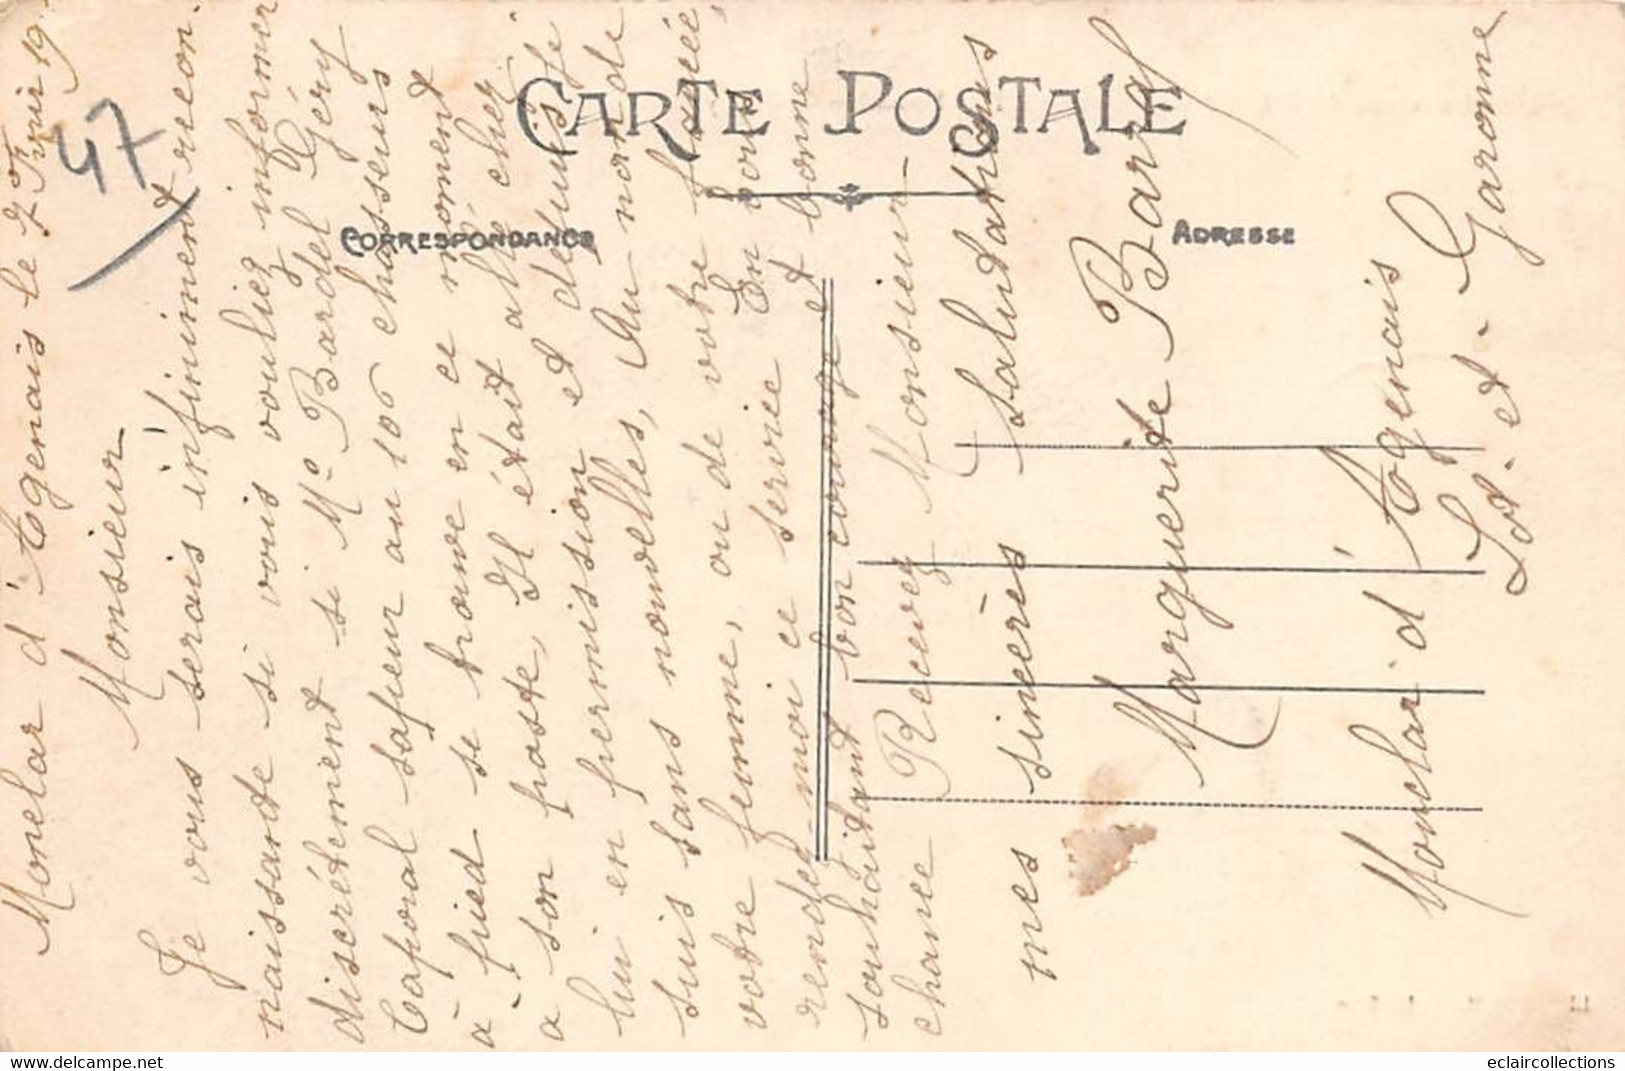 CARTE POSTALE
CORRESPONDANCE
ADRESSE
47
Monclar d'Agenais le 7 Fvrier 19
Monsieur
Je vous serais infiniment recon-
naissante si vous vouliez informer
discrétement si Mr Bardel Géry
Caporal sapeur au 10e chasseurs
à pied se trouve en ce moment
à son poste, Il était allé chez
lui en permission et depuis je
suis sans nouvelles, Au nom de
votre femme, ou de votre fiancée,
rendez-moi ce service En vous
souhaitant bon courage et bonne
chance Recevez Monsieur
mes sincères salutations
Marguerite Barral
Monclar d'Agenais
Lot-et-Garonne
eclaircollections